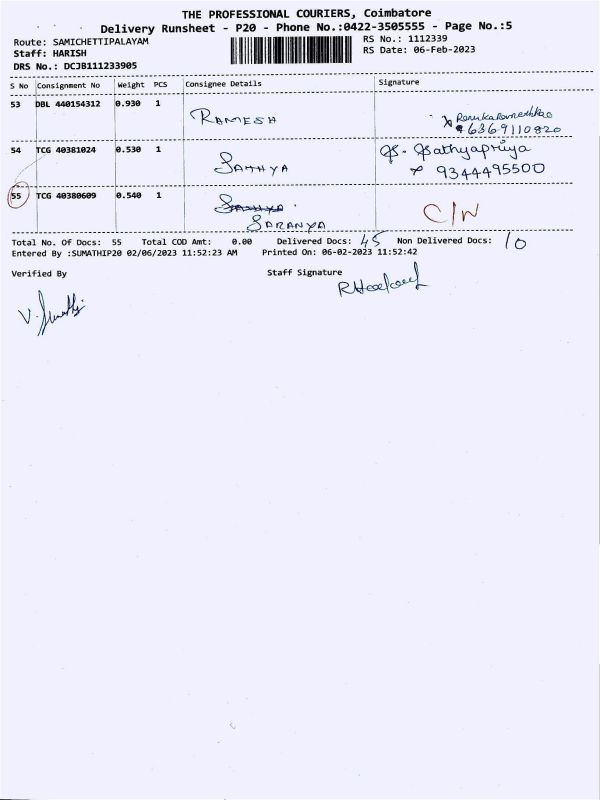 THE PROFESSIONAL COURIERS, Coimbatore
Delivery Runsheet - P20 - Phone No.:0422-3505555 - Page No.:5
Route: SAMICHETTIPALAYAM
Staff: HARISH
DRS No.: DCJB111233905
RS No.: 1112339
RS Date: 06-Feb-2023
S No Consignment No Weight PCS Consignee Details Signature
53 DBL 440154312 0.930 1 RAMESH
6369110820
54 TCG 40381024 0.530 1 SATHYA S. Sathyapriya
9344495500
55 TCG 40380609 0.540 1 SATHYA C/N
SARANYA
Total No. Of Docs: 55 Total COD Amt: 0.00 Delivered Docs: 45 Non Delivered Docs: 10
Entered By :SUMATHIP20 02/06/2023 11:52:23 AM Printed On: 06-02-2023 11:52:42
Verified By Staff Signature
V. Sumathi